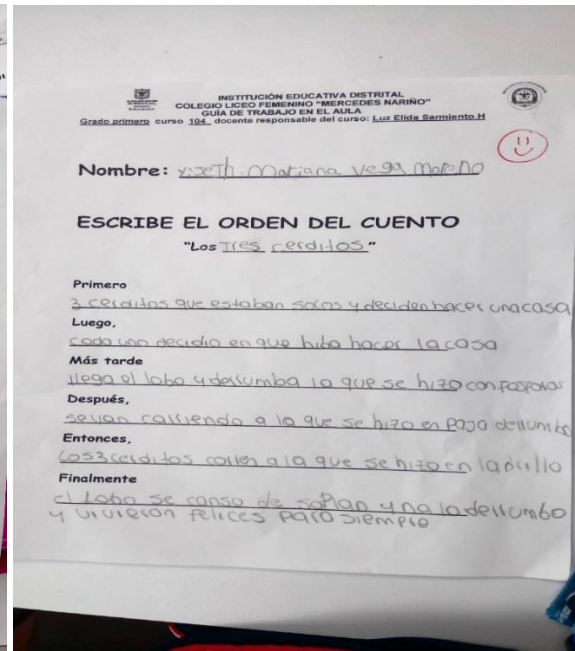 INSTITUCIÓN EDUCATIVA DISTRITAL
COLEGIO LICEO FEMENINO "MERCEDES NARIÑO"
GUÍA DE TRABAJO EN EL AULA
Grado primero curso 104 docente responsable del curso: Luz Elida Sarmiento H
Nombre: Yizeth Mariana Vega Moreno
ESCRIBE EL ORDEN DEL CUENTO
"Los Tres cerditos"
Primero
3 cerditos que estaban solos y deciden hacer una casa
Luego,
cada uno decidio en que hiba hacer la casa
Más tarde
llega el lobo y derrumba la que se hizo con fosforos
Después,
se van corriendo a la que se hizo en paja derrumbo
Entonces,
Los 3 cerditos corren a la que se hizo en ladrillo
Finalmente
el lobo se canso de soplan y no la derrumbo
y vivieron felices para siempre